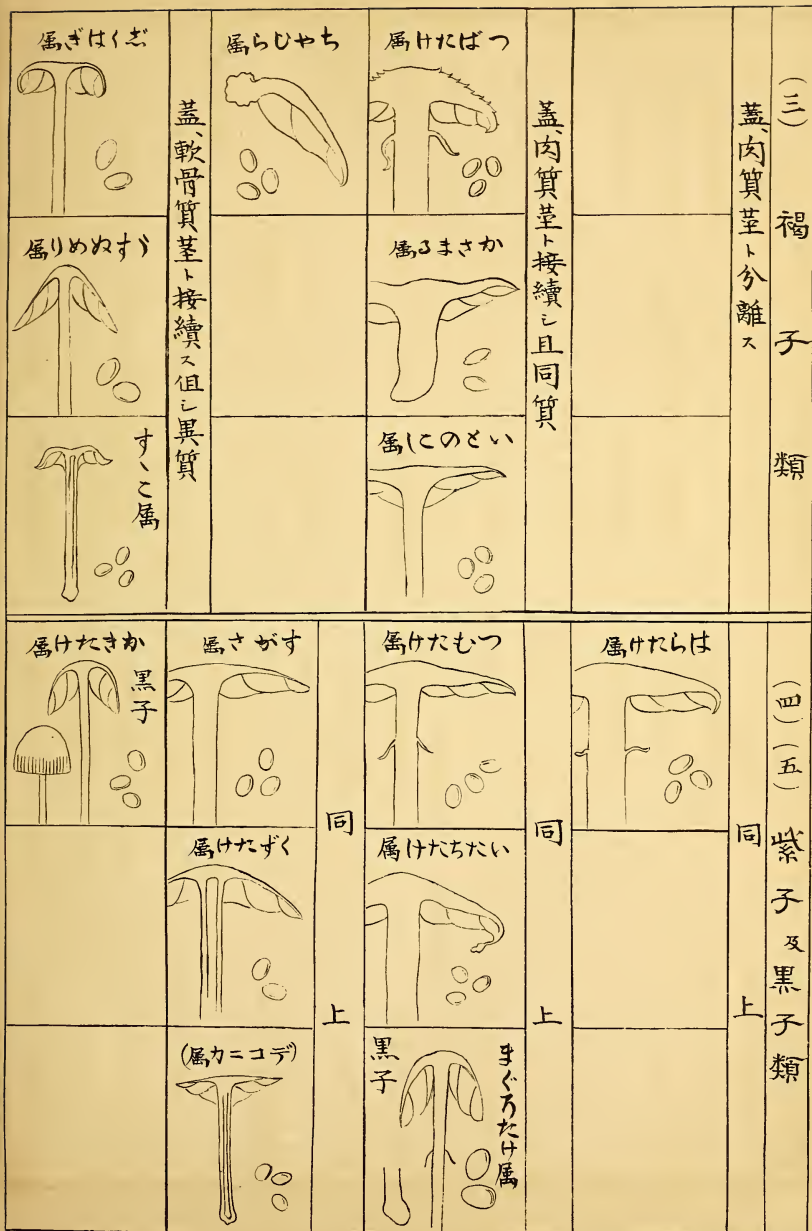 (三) 褐子類
蓋、肉質莖ト分離ス
蓋、肉質莖ト接續シ且同質
つばたけ属
かさまる属
いとのこし属
ちやひら属
蓋、軟骨質莖ト接續ス但シ異質
志くはぎ属
うすぬめり属
すゝこ属
(四)(五) 紫子及黒子類
同上
はらたけ属
同上
つむたけ属
いたちたけ属
まぐろたけ属
黒子
同上
すがさ属
くずたけ属
(デコニカ属)
かきたけ属
黒子